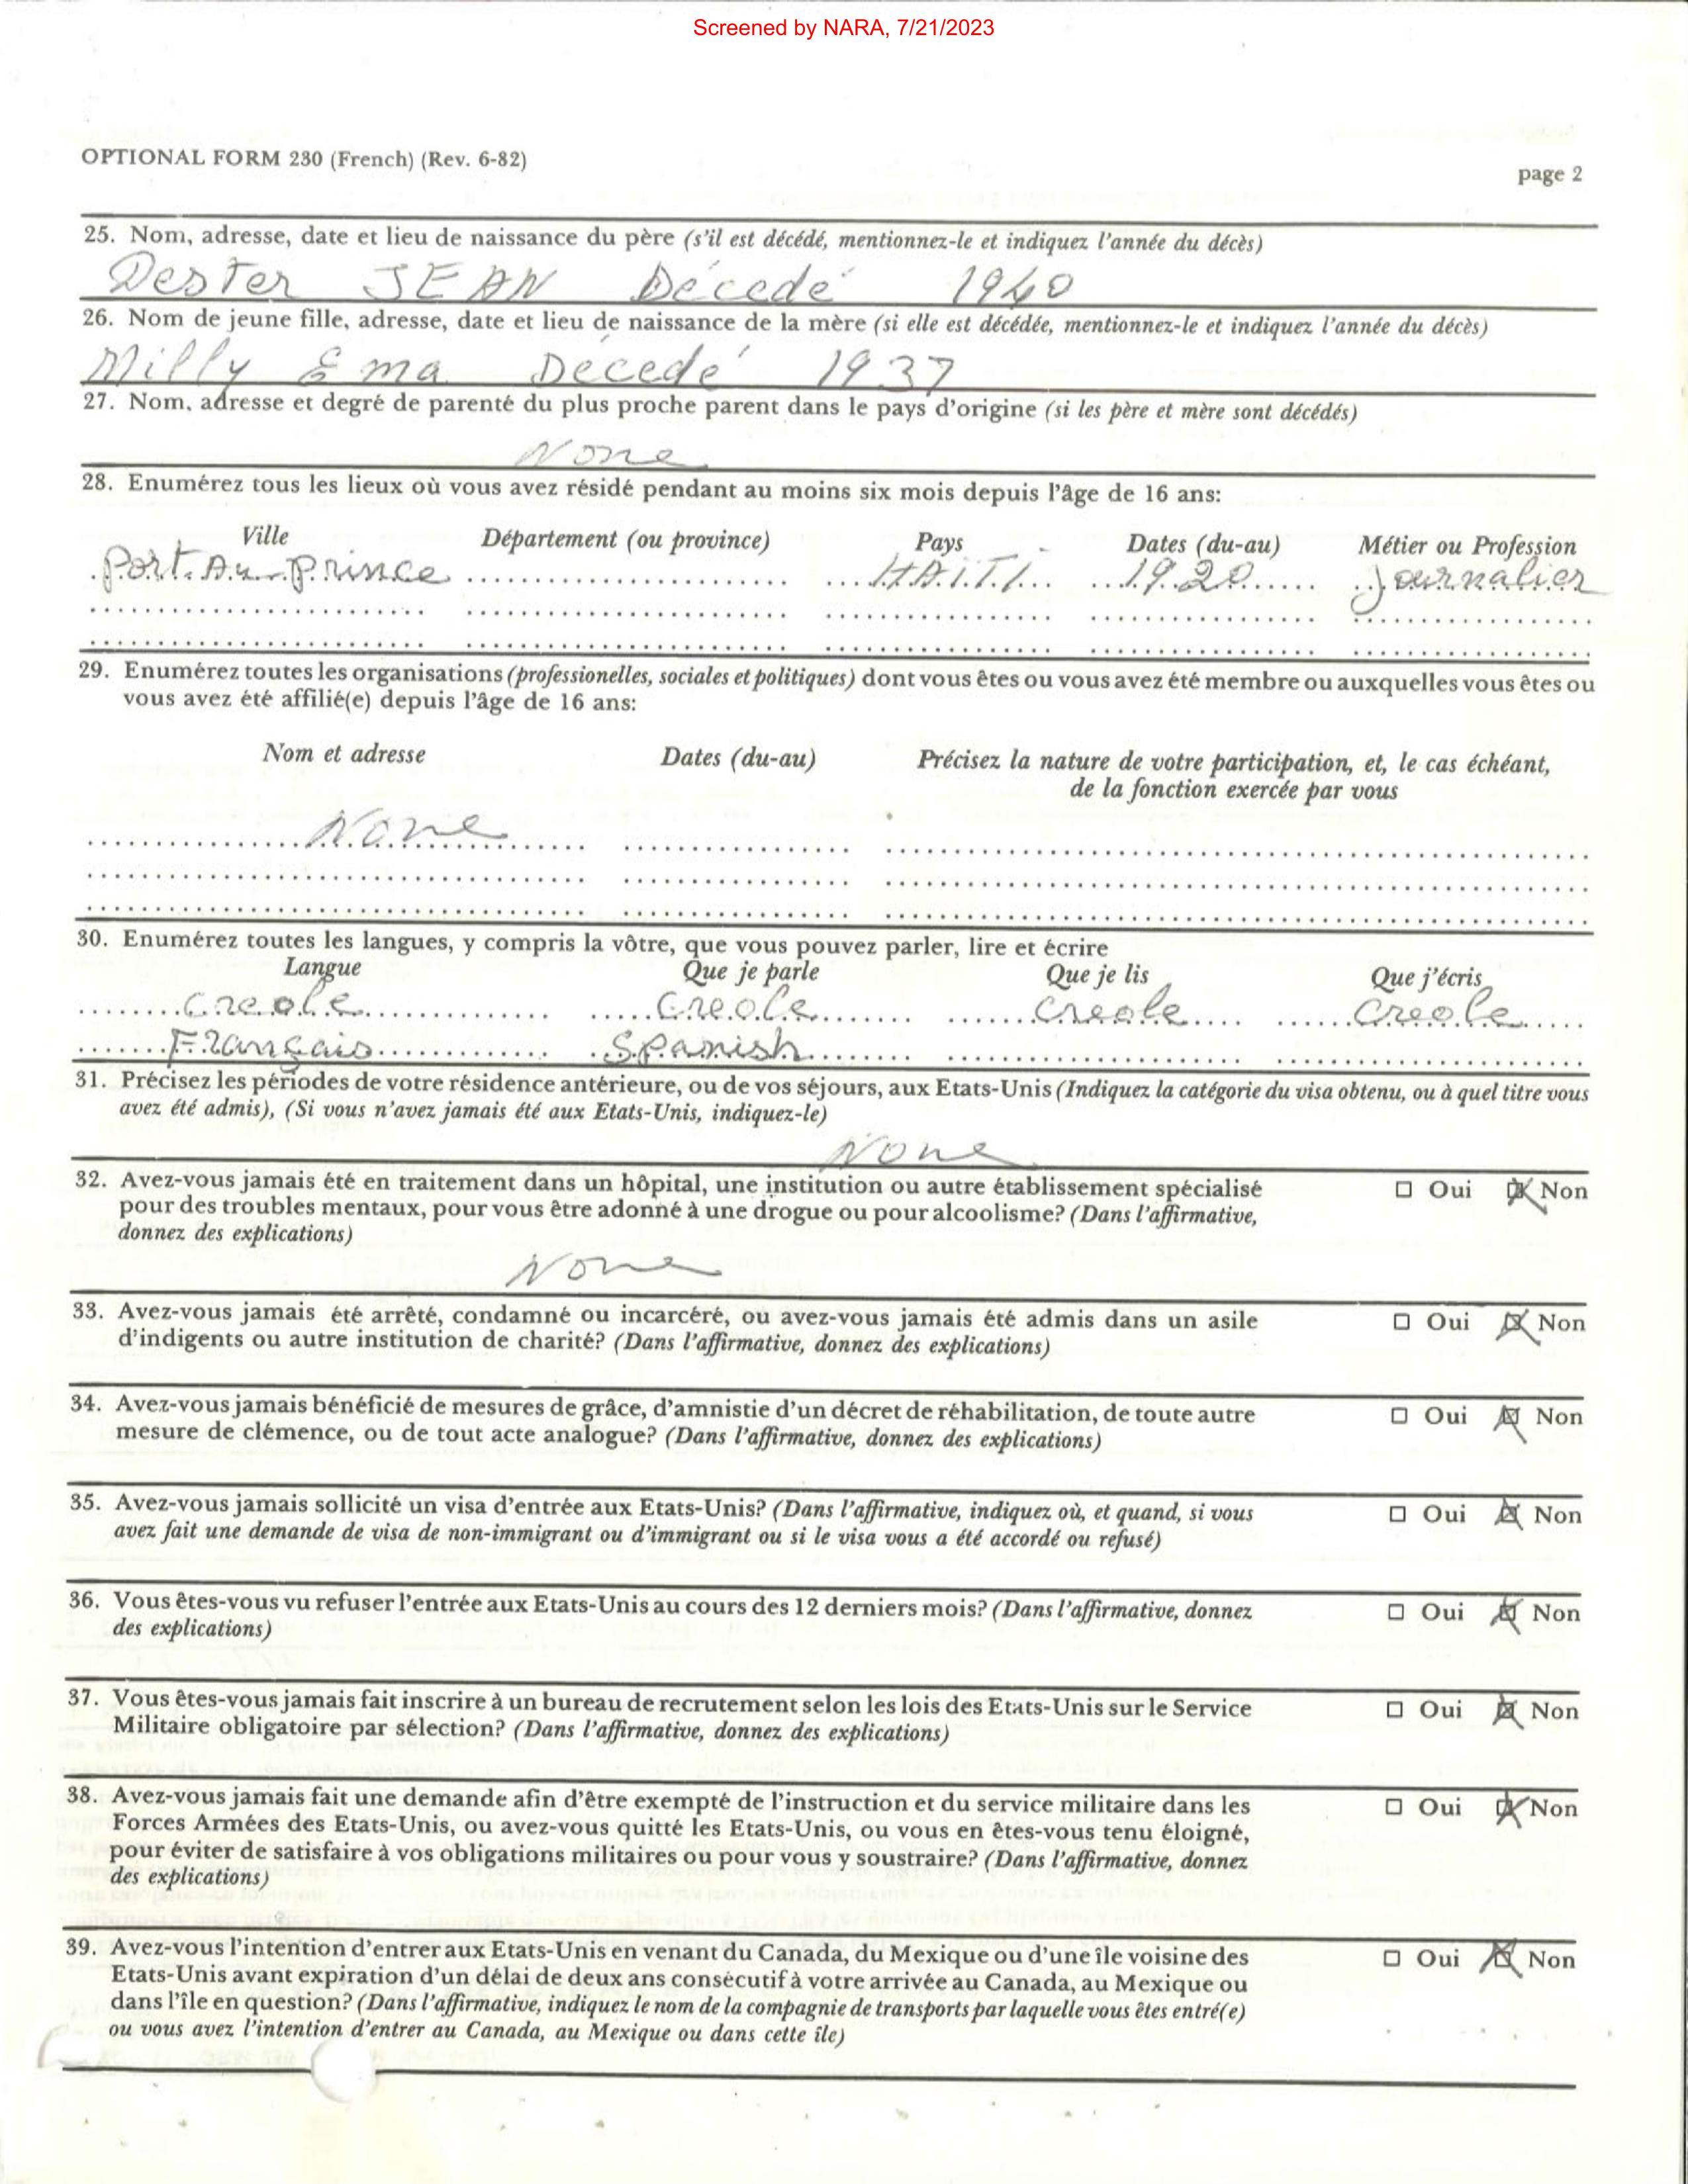 Screened by NARA, 7/21/2023
OPTIONAL FORM 230 (French) (Rev. 6-82)
page 2
25. Nom, adresse, date et lieu de naissance du père (s'il est décédé, mentionnez-le et indiquez l'année du décès)
Dester JEAN Décedé 1940
26. Nom de jeune fille, adresse, date et lieu de naissance de la mère (si elle est décédée, mentionnez-le et indiquez l'année du décès)
Milly Ema Decedé 1937
27. Nom, adresse et degré de parenté du plus proche parent dans le pays d'origine (si les père et mère sont décédés)
None
28. Enumérez tous les lieux où vous avez résidé pendant au moins six mois depuis l'âge de 16 ans:
Ville Département (ou province) Pays Dates (du-au) Métier ou Profession
Port Au Prince HAITI 1920 Journalier
29. Enumérez toutes les organisations (professionelles, sociales et politiques) dont vous êtes ou vous avez été membre ou auxquelles vous êtes ou
vous avez été affilié(e) depuis l'âge de 16 ans:
Nom et adresse Dates (du-au) Précisez la nature de votre participation, et, le cas échéant,
de la fonction exercée par vous
None
30. Enumérez toutes les langues, y compris la vôtre, que vous pouvez parler, lire et écrire
Langue Que je parle Que je lis Que j'écris
Creole Creole Creole Creole
Français Spanish
31. Précisez les périodes de votre résidence antérieure, ou de vos séjours, aux Etats-Unis (Indiquez la catégorie du visa obtenu, ou à quel titre vous
avez été admis), (Si vous n'avez jamais été aux Etats-Unis, indiquez-le)
None
32. Avez-vous jamais été en traitement dans un hôpital, une institution ou autre établissement spécialisé ☐ Oui ☒ Non
pour des troubles mentaux, pour vous être adonné à une drogue ou pour alcoolisme? (Dans l'affirmative,
donnez des explications)
None
33. Avez-vous jamais été arrêté, condamné ou incarcéré, ou avez-vous jamais été admis dans un asile ☐ Oui ☒ Non
d'indigents ou autre institution de charité? (Dans l'affirmative, donnez des explications)
34. Avez-vous jamais bénéficié de mesures de grâce, d'amnistie d'un décret de réhabilitation, de toute autre ☐ Oui ☒ Non
mesure de clémence, ou de tout acte analogue? (Dans l'affirmative, donnez des explications)
35. Avez-vous jamais sollicité un visa d'entrée aux Etats-Unis? (Dans l'affirmative, indiquez où, et quand, si vous ☐ Oui ☒ Non
avez fait une demande de visa de non-immigrant ou d'immigrant ou si le visa vous a été accordé ou refusé)
36. Vous êtes-vous vu refuser l'entrée aux Etats-Unis au cours des 12 derniers mois? (Dans l'affirmative, donnez ☐ Oui ☒ Non
des explications)
37. Vous êtes-vous jamais fait inscrire à un bureau de recrutement selon les lois des Etats-Unis sur le Service ☐ Oui ☒ Non
Militaire obligatoire par sélection? (Dans l'affirmative, donnez des explications)
38. Avez-vous jamais fait une demande afin d'être exempté de l'instruction et du service militaire dans les ☐ Oui ☒ Non
Forces Armées des Etats-Unis, ou avez-vous quitté les Etats-Unis, ou vous en êtes-vous tenu éloigné,
pour éviter de satisfaire à vos obligations militaires ou pour vous y soustraire? (Dans l'affirmative, donnez
des explications)
39. Avez-vous l'intention d'entrer aux Etats-Unis en venant du Canada, du Mexique ou d'une île voisine des ☐ Oui ☒ Non
Etats-Unis avant expiration d'un délai de deux ans consécutif à votre arrivée au Canada, au Mexique ou
dans l'île en question? (Dans l'affirmative, indiquez le nom de la compagnie de transports par laquelle vous êtes entré(e)
ou vous avez l'intention d'entrer au Canada, au Mexique ou dans cette île)